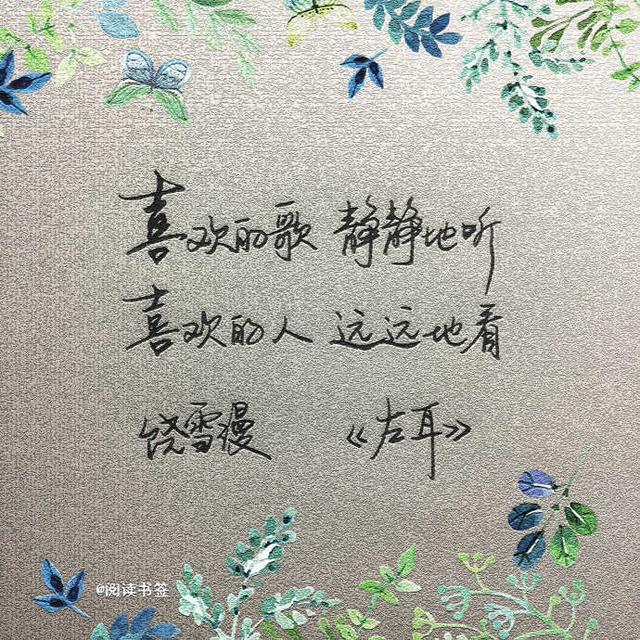 喜欢的歌 静静地听
喜欢的人 远远地看
饶雪漫 《左耳》
@阅读书签